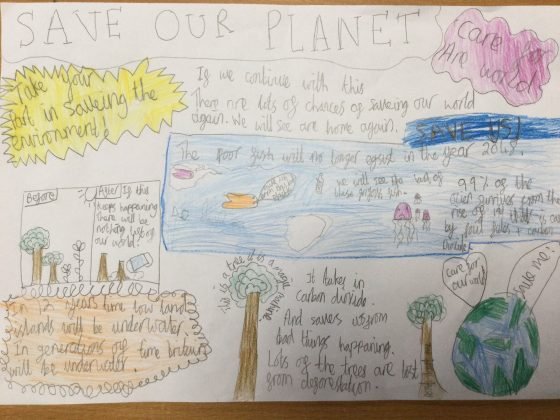 SAVE OUR PLANET
Care for
Are world
Take your
Part in saveing the
environment!
If we continue with this
There are lots of chances of saveing our world
again. We will see are home again.
SAVE US!
The poor fish will no longer egsist in the year 2048.
we will see the last of
these fish.
99% of the
from the
rise of
by
Before
After
If this
keeps happening
there will be
nothing left of
our world!
In 12 years time low land
islands will be underwater.
In generations of time britain
will be underwater.
this is a tree it is a magic machine
It takes in
carbon dioxide.
And saves us from
bad things happaining.
Lots of the trees are lost
from deforestation.
Care for
our world
Save me!